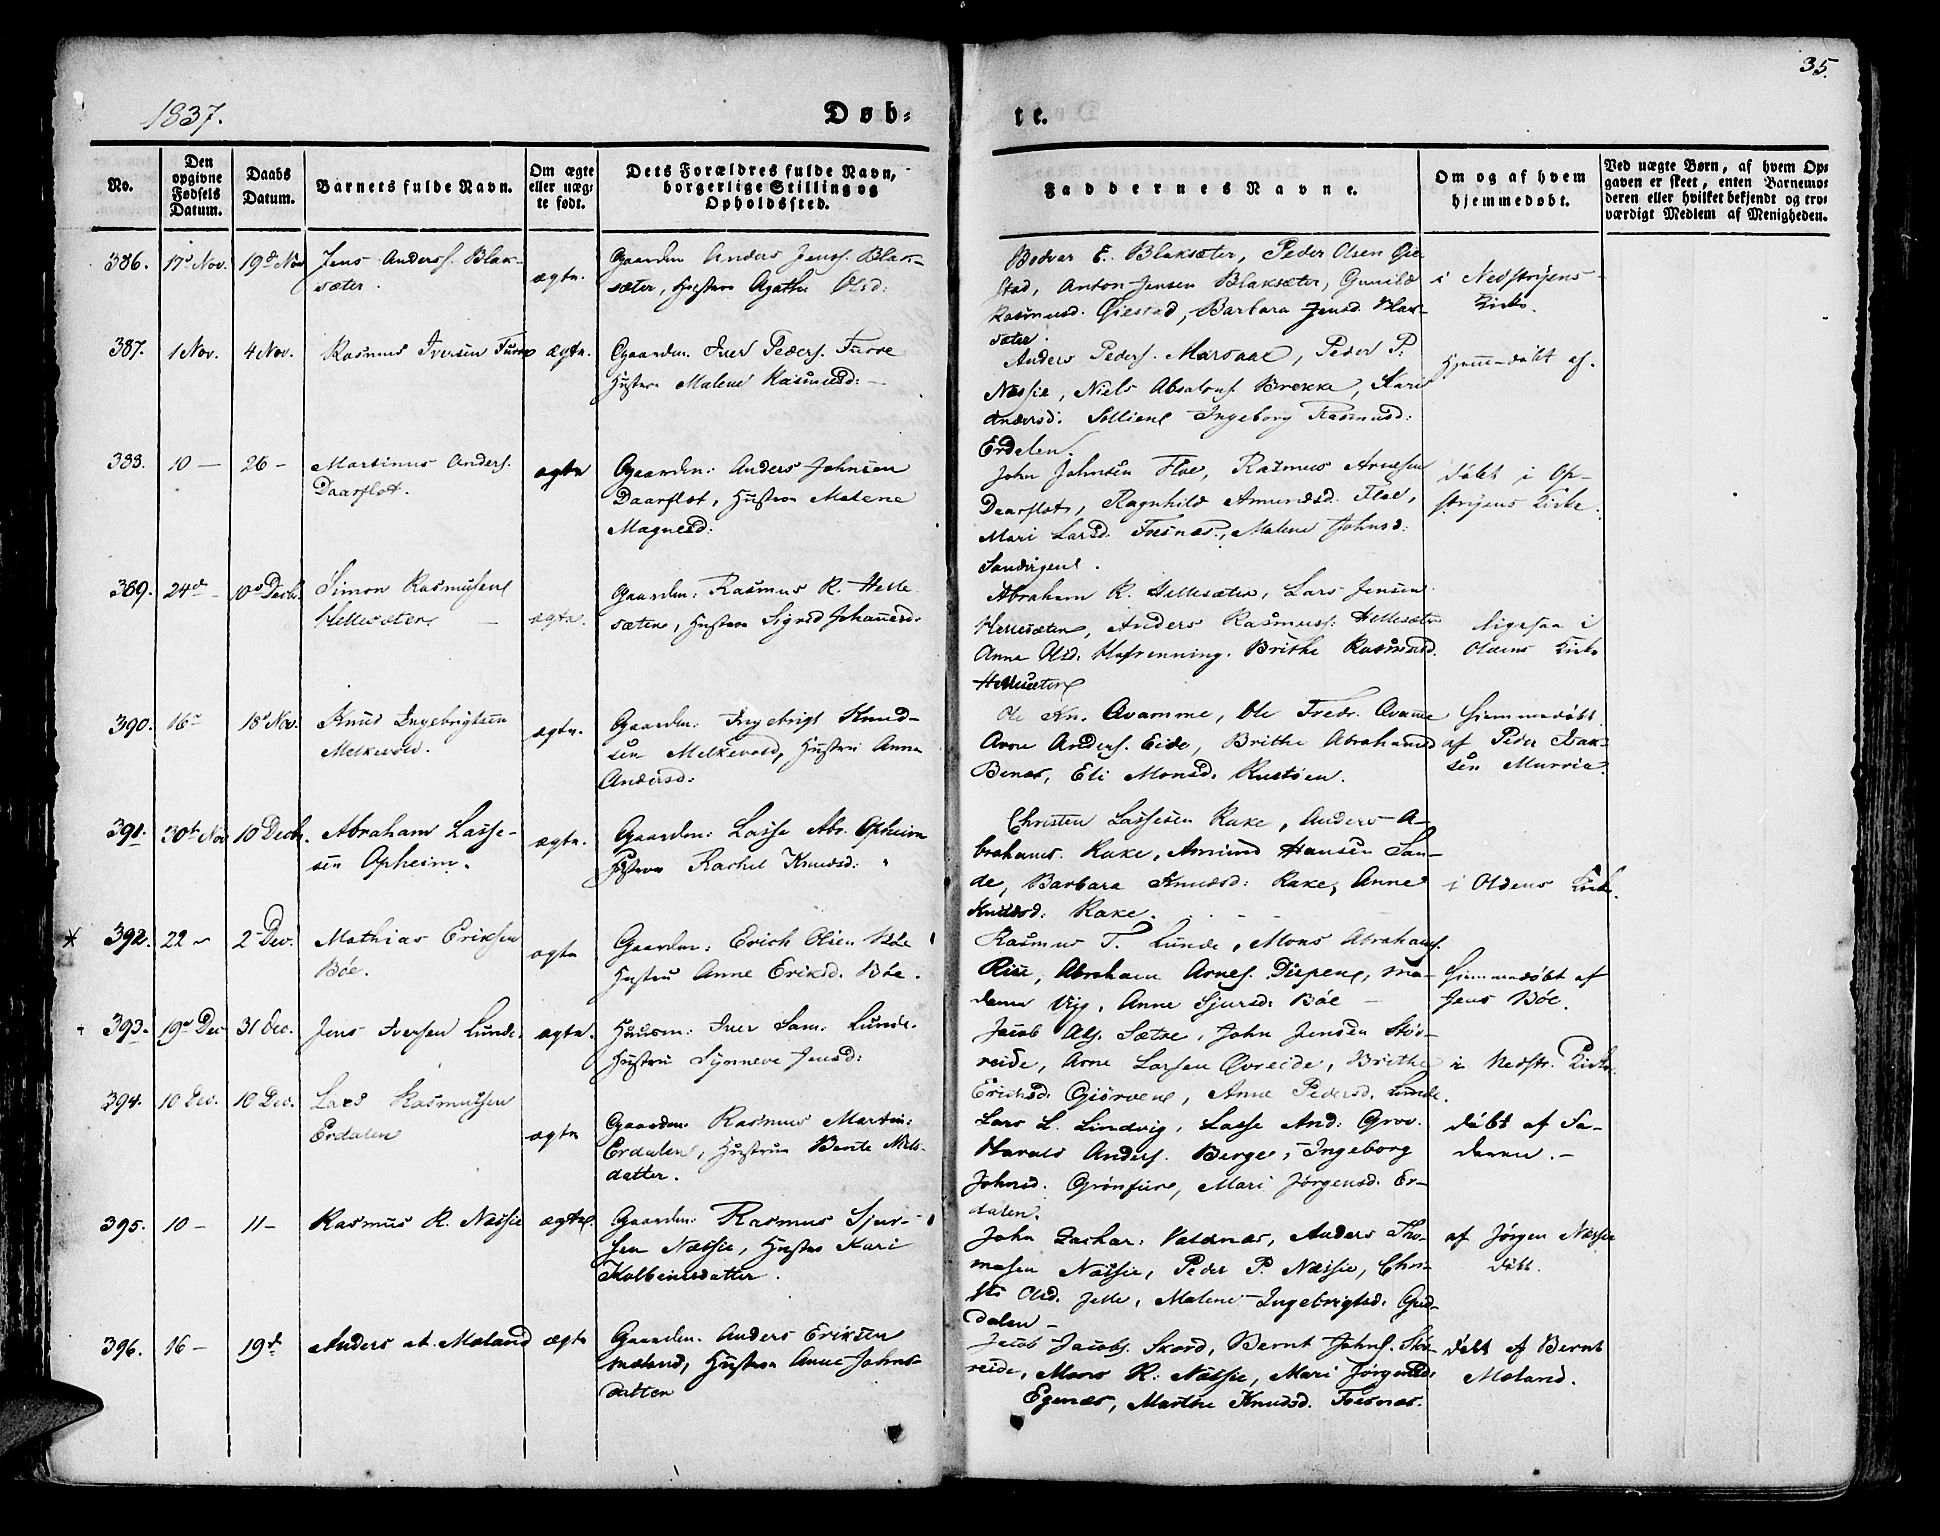 35.
1837.
Døb-
te.
No.
Den opgivne Fødsels Datum.
Daabs Datum.
Barnets fulde Navn.
Om ægte eller uæg-te født.
Dets Forældres fulde Navn, borgerlige Stilling og Opholdssted.
Faddernes Navne.
Om og af hvem hjemmedøbt.
Ved uægte Børn, af hvem Op-gaven er skeet, enten Barnemo-deren eller hvilket bekjendt og tro-værdigt Medlem af Menigheden.
386. 17d Nov. 19d Nov Jens Anders. Blak-
sæter.
ægte.
Gaarden Anders Jens. Blak-
sæter, Hustru Agathe Olsd:
Bodvar E. Blaksæter, Peder Olsen Gie-
stad, Anton Jensen Blaksæter, Gunild
Rasmusd. Giestad, Barbara Jensd. Blak-
sæter.
i Nedstryens
Kirke.
387. 1 Nov. 4 Nov. Rasmus Iversen Furre ægte.
Gaarden. Iver Peders. Furre
Hustru Malene Rasmusd: —
Anders Peders. Marsaae, Peder P.
Næsje, Niels Absalons. Brekke, Kari
Andersd: Ingeborg Rasmusd:
Erdalen.
Hjemmedøbt af.
388. 10 — 26 - Martinus Anders.
Daarflot.
ægte
Gaarden: Anders Johnsen
Daarflot, Hustru Malene
Magnesd:
John Johnsen Floe, Rasmus Arnesen
Daarflot, Ragnhild Amundsd: Floe,
Mari Larsd. Fosnæs, Malene Johnsd:
Sandvigene.
døbt i Op-
stryens Kirke.
389. 24d - 10d Decb. Simon Rasmusen
Hellesæter —
ægte.
Gaarden: Rasmus R. Helle
sæter, Hustru Sigrid Johannesd.
Abraham R. Hellesæter, Lars Jensen
Hellesæter, Anders Rasmuss: Hellesæter
Anna Olsd. Hafrenning. Brithe Rasmusd.
Hellesæter
ligesaa i
Oldens Kirke
390. 16 - 18d Nov. Knud Ingebrigtsen
Melkevold.
ægte.
Gaarden: Ingebrigt Knud-
sen Melkevold, Hustru Anna
Andersd:
Ole Kn. Qvamme, Ole Fredr. Qvamme
Arne Anders. Eide, Brithe Abrahamsd
Benæs, Eli Monsd. Rustøen.
hjemmedøbt
af Peder Isak-
sen Murrie.
391. 30te Nov 10 Decb. Abraham Lasse-
sen Opheim.
ægte.
Gaarden: Lasse Abr. Opheim
Hustru Rachel Knudsd:
Christen Lassesen Rake, Anders A-
brahams. Rake, Amund Hansen San-
de, Barbara Knudsd: Rake, Anne
Knudsd: Rake.
i Oldens Kirke.
392. 22 - 2 Dec. Mathias Eriksen
Bøe.
ægte
Gaarden: Erich Olsen Bøe
Hustru Anne Eriksd. Bøe.
Rasmus T. Lunde, Mons Abrahams.
Rise, Abraham Arnes. Diupene, Ma-
dame Vig, Anne Sjursd: Bøe —
hjemmedøbt af
Jens Bøe.
393. 19d Dec 31 Dec. Jens Iversen Lunde. ægte.
Huusm: Iver Sam: Lunde.
Hustru Synneve Jensd:
Jacob Sætre, John Jensen Stør-
reide, Arne Larsen Qvreide, Brithe
Eriksd: Giørvene, Anne Pedersd. Lunde.
i Nedstr. Kirke.
394. 10 Dec. 10 Dec. Lars Rasmussen
Erdalen
ægte
Gaarden. Rasmus Martin:
Erdalen, Hustru Bente Niels-
datter.
Lars L. Lindvig, Lasse And. Grov.
Harald Anders. Berge, Ingeborg
Johnsd. Grønfure, Mari Jørgensd. Er-
dalen.
døbt af Fa-
deren. —
395. 10 — 11 — Rasmus R. Næsje ægte.
Gaarden: Rasmus Sjur-
sen Næsje, Hustru Kari
Kolbeinsdatter.
John Zachar: Valdnæs, Anders Tho-
masen Næsje, Peder P. Næsje, Chri-
sti Olsd. Jelle, Malene Ingebrigtsd.
dalen —
af Jørgen Næsje
døbt.
396. 16 — 19d Anders A. Mæland ægte
Gaarden. Anders Eriksen
Mæland, Hustru Anne Johns-
datter
Jacob Jacobs. Skord, Bernt Johns. Stør-
reide, Mons R. Næsje, Mari Jørgensd:
Egenæs, Marthe Knudsd. Fosnæs.
døbt af Bernt
Mæland.